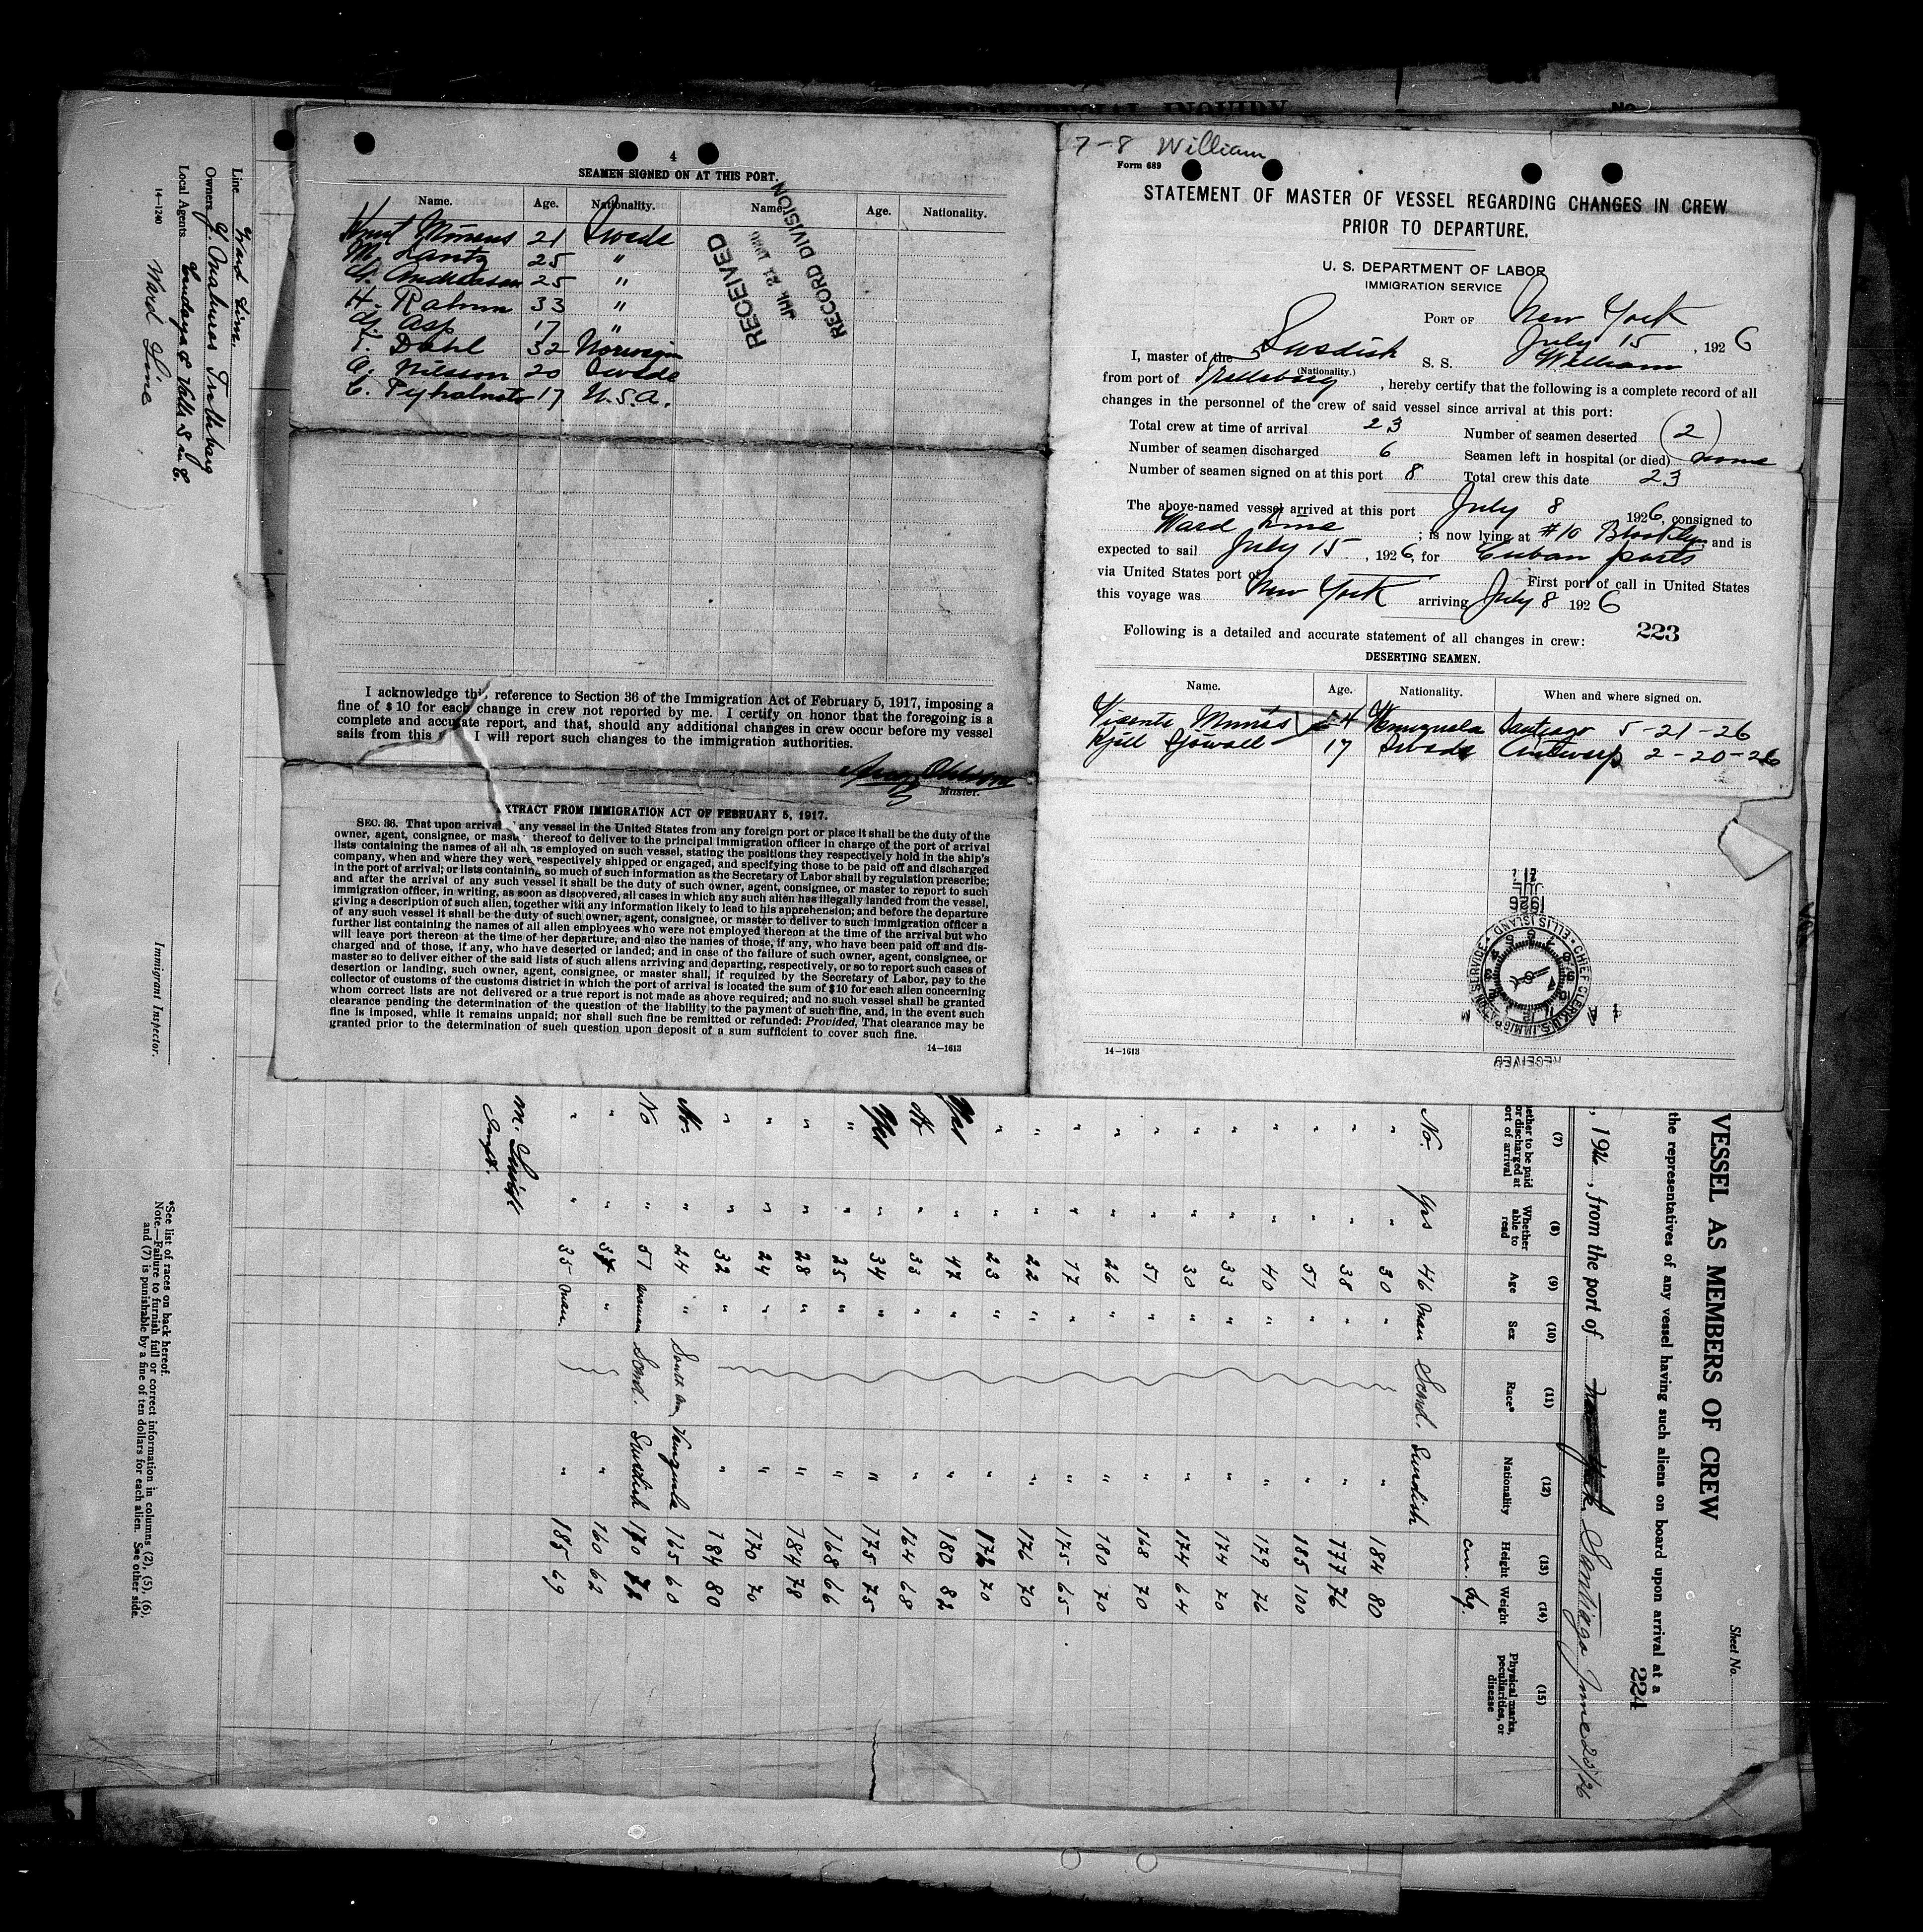 SPECIAL INQUIRY
No
4
SEAMEN SIGNED ON AT THIS PORT.
Name. Age. Nationality. Name. Age. Nationality.
21 Swede
M. Lantz 25 "
25 "
H. 33 "
Asp 17 "
Dahl 32
Nilsson 20 Swede
C. 17 U.S.A.
RECEIVED
RECORD DIVISION
I acknowledge this reference to Section 36 of the Immigration Act of February 5, 1917, imposing a
fine of $10 for each change in crew not reported by me. I certify on honor that the foregoing is a
complete and accurate report, and that, should any additional changes in crew occur before my vessel
sails from this I will report such changes to the immigration authorities.
Master.
EXTRACT FROM IMMIGRATION ACT OF FEBRUARY 5, 1917.
SEC. 36. That upon arrival any vessel in the United States from any foreign port or place it shall be the duty of the
owner, agent, consignee, or master thereof to deliver to the principal immigration officer in charge of the port of arrival
lists containing the names of all aliens employed on such vessel, stating the positions they respectively hold in the ship's
company, when and where they were respectively shipped or engaged, and specifying those to be paid off and discharged
in the port of arrival; or lists containing so much of such information as the Secretary of Labor shall by regulation prescribe;
and after the arrival of any such vessel it shall be the duty of such owner, agent, consignee, or master to report to such
immigration officer, in writing, as soon as discovered, all cases in which any such alien has illegally landed from the vessel,
giving a description of such alien, together with any information likely to lead to his apprehension; and before the departure
of any such vessel it shall be the duty of such owner, agent, consignee, or master to deliver to such immigration officer a
further list containing the names of all alien employees who were not employed thereon at the time of the arrival but who
will leave port thereon at the time of her departure, and also the names of those, if any, who have been paid off and dis-
charged and of those, if any, who have deserted or landed; and in case of the failure of such owner, agent, consignee, or
master so to deliver either of the said lists of such aliens arriving and departing, respectively, or so to report such cases of
desertion or landing, such owner, agent, consignee, or master shall, if required by the Secretary of Labor, pay to the
collector of customs of the customs district in which the port of arrival is located the sum of $10 for each alien concerning
whom correct lists are not delivered or a true report is not made as above required; and no such vessel shall be granted
clearance pending the determination of the question of the liability to the payment of such fine, and, in the event such
fine is imposed, while it remains unpaid; nor shall such fine be remitted or refunded: Provided, That clearance may be
granted prior to the determination of such question upon deposit of a sum sufficient to cover such fine.
14—1613
7-8 William
Form 689
STATEMENT OF MASTER OF VESSEL REGARDING CHANGES IN CREW
PRIOR TO DEPARTURE.
U. S. DEPARTMENT OF LABOR
IMMIGRATION SERVICE
PORT OF New York
July 15, 1926
I, master of the Swedish S. S. William
(Nationality.)
from port of Trelleborg, hereby certify that the following is a complete record of all
changes in the personnel of the crew of said vessel since arrival at this port:
Total crew at time of arrival 23 Number of seamen deserted (2)
Number of seamen discharged 6 Seamen left in hospital (or died) none
Number of seamen signed on at this port 8 Total crew this date 23
The above-named vessel arrived at this port July 8 1926, consigned to
Ward Line; is now lying at #10 Brooklyn and is
expected to sail July 15, 1926, for Cuban ports
via United States port of First port of call in United States
this voyage was New York arriving July 8 1926
Following is a detailed and accurate statement of all changes in crew: 223
DESERTING SEAMEN.
Name. Age. Nationality. When and where signed on.
Vicente Venezuela Santiago 5-21-26
Kjell Sjöwall 17 Swede Antwerp 2-20-26
JUL 1926
CHIEF CLERK U.S. IMMIGRATION SERVICE ELLIS ISLAND
RECEIVED
14—1613
VESSEL AS MEMBERS OF CREW
Sheet No.
the representatives of any vessel having such aliens on board upon arrival at a
224
, 1926, from the port of Santiago June 23/26
(7) (8) (9) (10) (11) (12) (13) (14) (15)
Whether to be paid or discharged at port of arrival
Whether able to read
Age
Sex
Race*
Nationality
Height
Weight
Physical marks, peculiarities, or disease
cm. kg.
No. Yes 46 man Scand. Swedish
" " 30 " " 184 80
" " 38 " " 177 76
" " 51 " " 185 100
" " 40 " " 179 76
" " 33 " " 174 70
" " 30 " " 174 64
" " 51 " " 168 70
" " 26 " " 180 70
" " 17 " " 175 65
" " 22 " " 176 70
" " 23 " " 70
Yes " 47 " " 180 82
No " 33 " " 164 68
Yes " 34 " " 175 75
" " 25 " " 168 66
" " 28 " " 184 78
" " 24 " " 170 70
" " 32 " " 184 80
No. " 24 " South Am Venezuela 165 60
No " 51 woman Scand. Swedish 170
" " " " 160 62
" " 35 man. " 185 69
M.
Line Ward Line,
Owners Trelleborg
Local Agents
14—1240
Ward Line
Immigrant Inspector.
*See list of races on back hereof.
Note.—Failure to furnish full or correct information in columns (2), (5), (6),
and (7) is punishable by a fine of ten dollars for each alien. See other side.